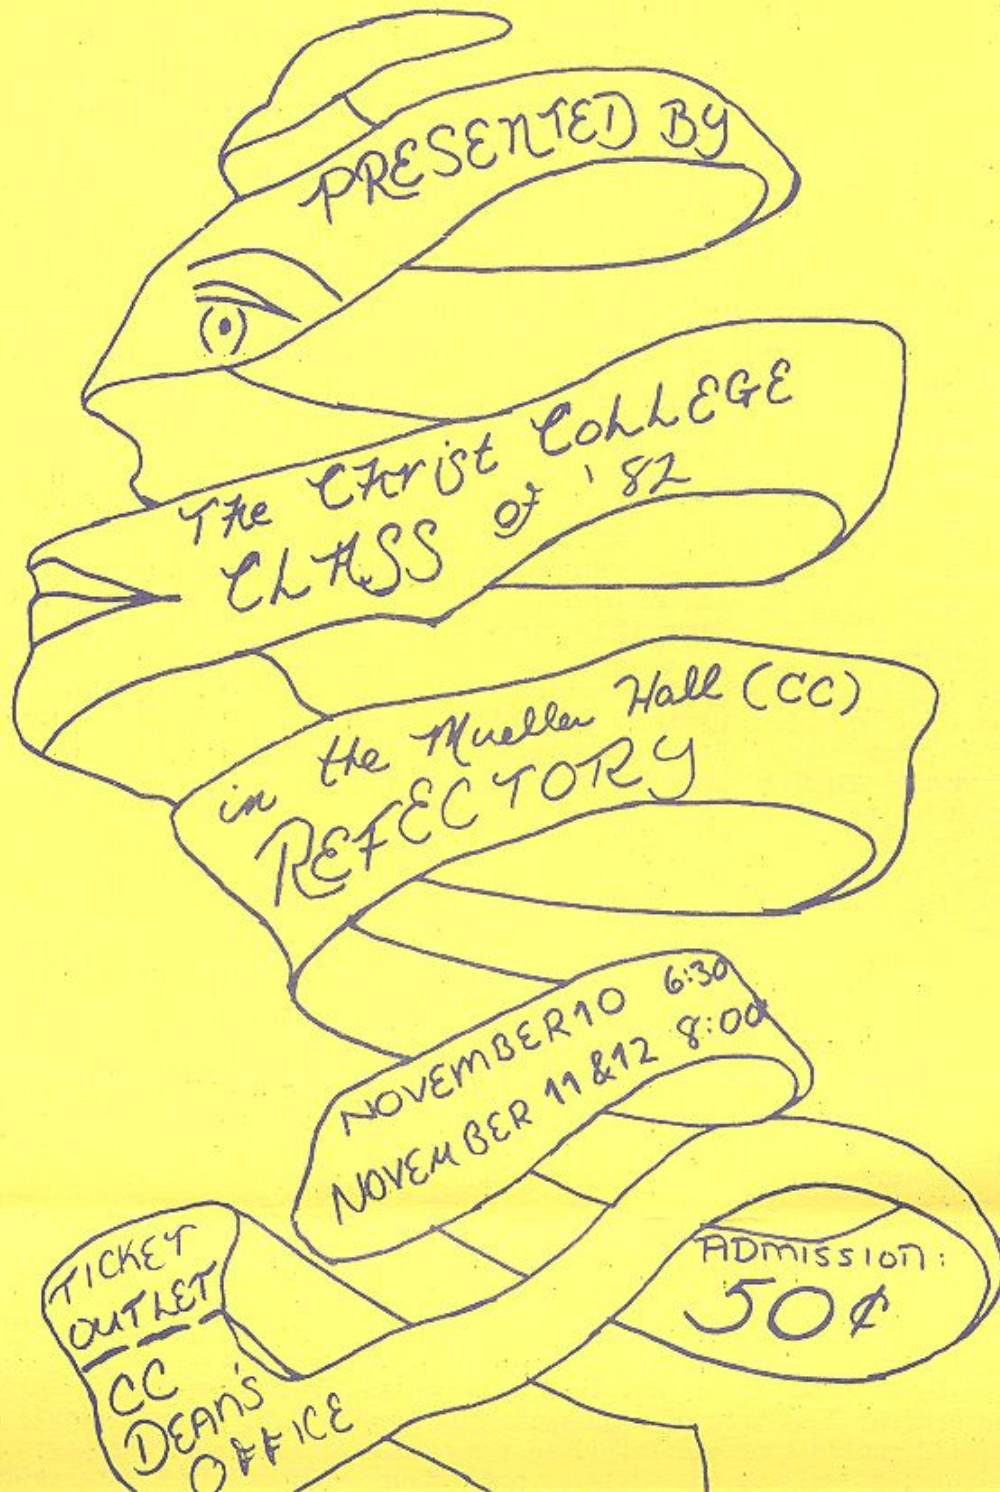 PRESENTED BY
The Christ COLLEGE
CLASS of '82
in the Mueller Hall (CC)
REFECTORY
NOVEMBER 10 6:30
NOVEMBER 11 & 12 8:00
ADMISSION:
50¢
TICKET
OUTLET
CC
DEAN'S
OFFICE